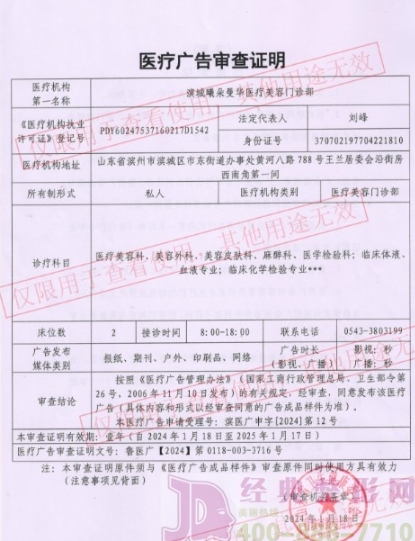 医疗广告审查证明
医疗机构
第一名称
滨城曦朵曼华医疗美容门诊部
《医疗机构执业
许可证》登记号
PDY60247537160217D1542
法定代表人
刘峰
身份证号
370702197704221810
医疗机构地址
山东省滨州市滨城区市东街道办事处黄河八路788号王兰居委会沿街房
西南角第一间
所有制形式
私人
医疗机构类别
医疗美容门诊部
诊疗科目
医疗美容科、美容外科、美容皮肤科、麻醉科、医学检验科；临床体液、
血液专业；临床化学检验专业***
床位数
2
接诊时间
8:00-18:00
联系电话
0543-3803199
广告发布
媒体类别
报纸、期刊、户外、印刷品、网络
广告时长
（影视、广播）
影视：秒
广播：秒
审查结论
按照《医疗广告管理办法》（国家工商行政管理总局、卫生部令第
26号，2006年11月10日发布）的有关规定，经审查，同意发布该医疗
广告（具体内容和形式以经审查同意的广告成品样件为准）。
本医疗广告申请受理号：滨医广申字[2024]第12号
本审查证明有效期：壹年（自2024年1月18日至2025年1月17日）
医疗广告审查证明文号：鲁医广【2024】第0118-003-3716号
注：本审查证明原件须与《医疗广告成品样件》审查原件同时使用方具有效力
（注意事项见背面）
（审查机关盖章）
2024年1月18日
仅限用于查看使用，其他用途无效
仅限用于查看使用，其他用途无效
经典整形网
400-838-7710